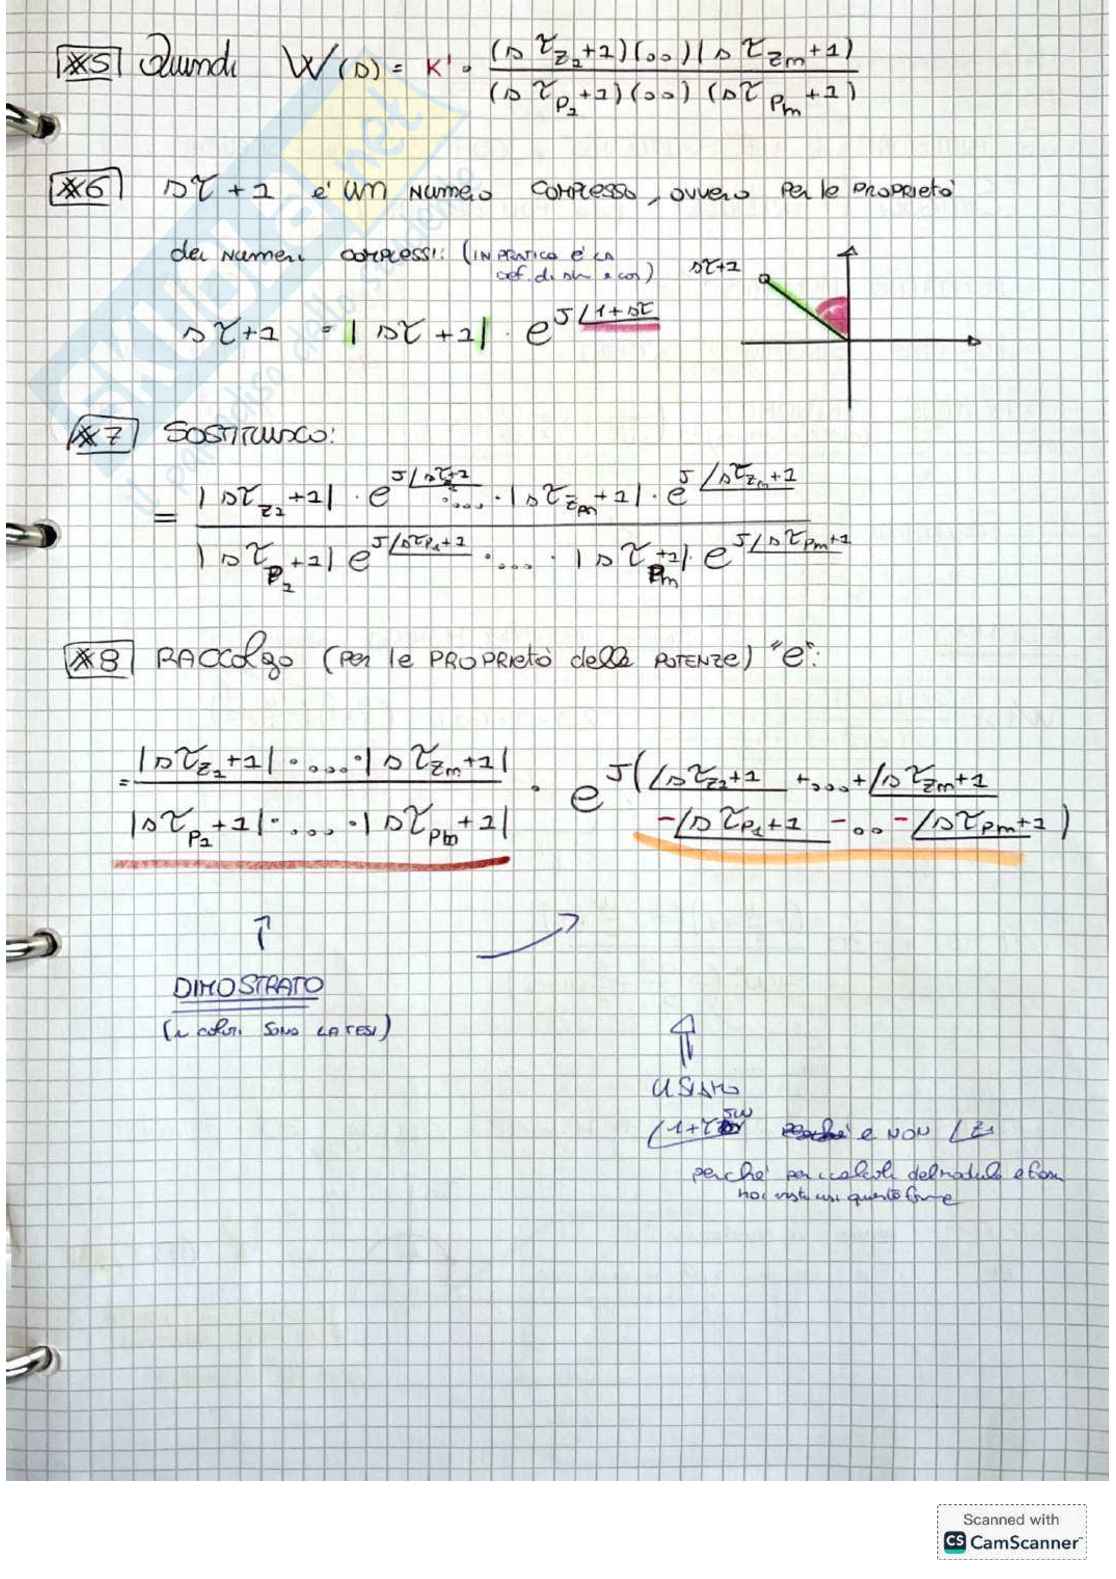 *5 Quindi W(s) = K' · (sτz1+1)(..)(sτzm+1) / (sτp1+1)(..)(sτpm+1)
*6 sτ+1 e' un numero complesso, ovvero per le proprietà
dei numeri complessi: (IN PRATICA È LA
def. di sin e cos)
sτ+1
sτ+1 = |sτ+1| · e^J∠1+sτ
*7 SOSTITUISCO:
= |sτz1+1| · e^J∠sτz+1 ..... · |sτzm+1| · e^J∠sτzm+1 / |sτp1+1| e^J∠sτp1+1 · ... · |sτpm+1| · e^J∠sτpm+1
*8 RACCOLGO (per le PROPRIETÀ delle POTENZE) "e":
= |sτz1+1| · .... · |sτzm+1| / |sτp1+1| · .... · |sτpm+1| · e^J(∠sτz1+1 +...+ ∠sτzm+1 - ∠sτp1+1 - .. - ∠sτpm+1)
DIMOSTRATO
(i colori SONO LA TESI)
USIAMO
∠1+τJW e NON ∠z1
perché per i calcoli del modulo e fase
noi questa forma
skuola.net
il paradiso dello studente
Scanned with
CS CamScanner